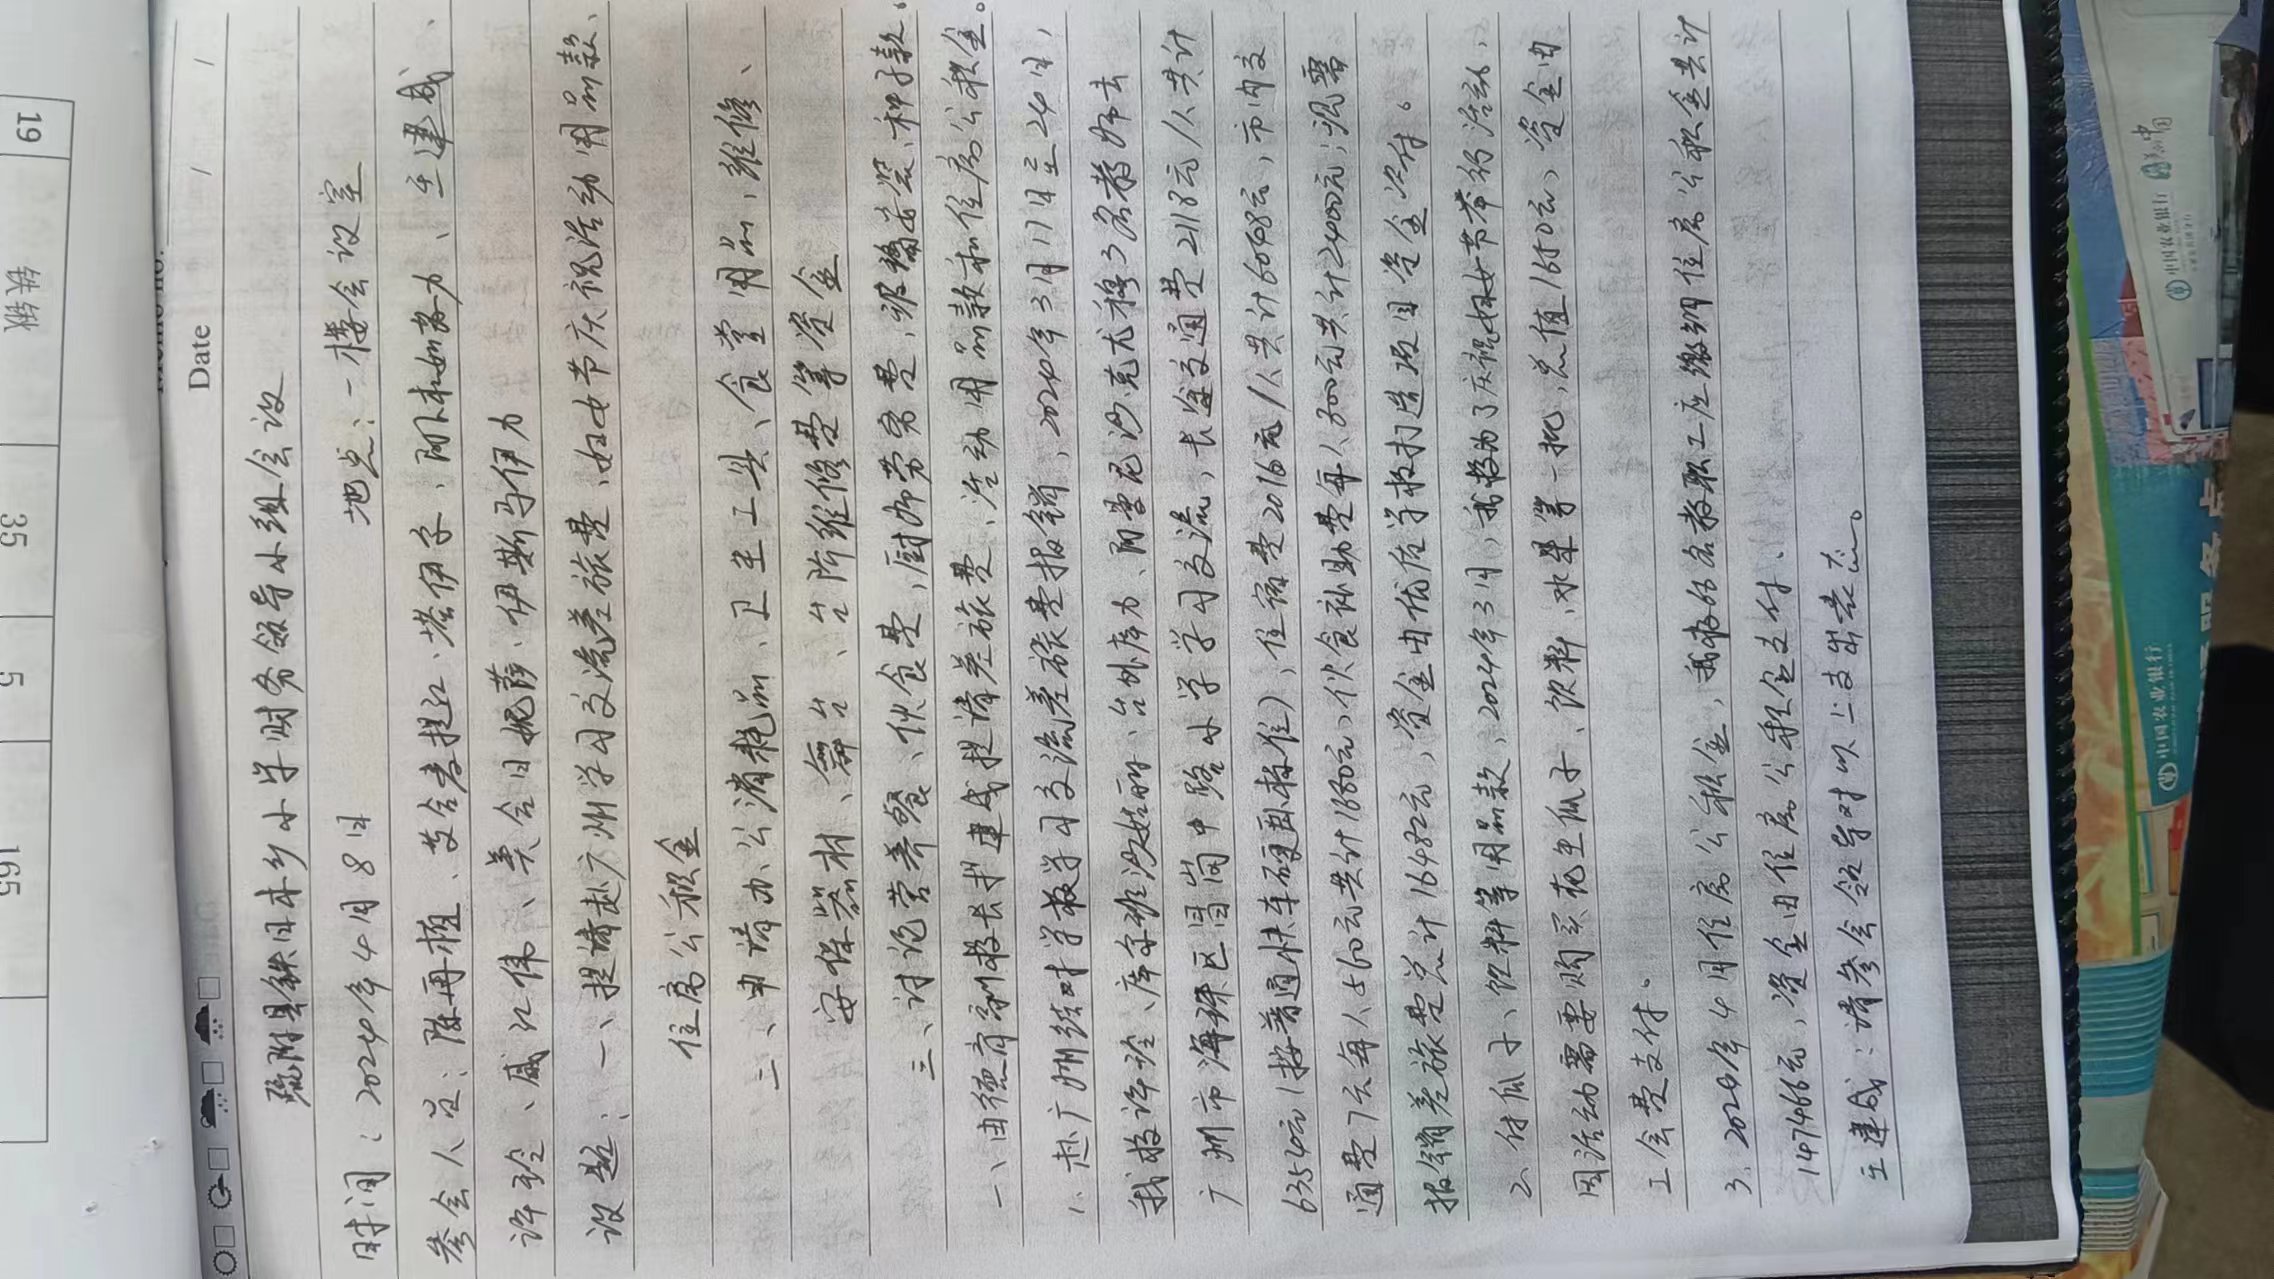 Date / /
疏附县铁日木乡小学财务领导小组会议
时间：2024年4月8日 地点：一楼会议室
参会人员：陈再植、艾合麦提江·塔伊尔、阿卜杜如苏力、王建成、
许玲、戚江伟、美合日妮莎·伊斯马伊力
议题：一、提请赴广州学习交流差旅费、妇女节庆祝活动用品款、
住房公积金
二、申请办公消耗品、卫生工具、食堂用品、维修、
安保器材、舞台、台阶维修费等资金
三、讨论营养餐、伙食费、厨师劳务费、玻璃安装、种子款。
一、由德育副校长王建成提请差旅费、活动用品款和住房公积金。
1、赴广州结对学校学习交流差旅费报销，2024年3月17日至24日，
我校许玲、库尔班沙姑丽、台外库力、阿曼尼沙·克尤穆3名教师去
广州市海珠区昌岗中路小学学习交流，长途交通费2118元/人共计
6354元（按普通快车硬卧标准），住宿费2016元/人共计6048元，市内交
通费7天每人560元共计1680元，伙食补助费每人800元共计2400元，现需
报销差旅费总计16482元，资金由优质学校打造项目资金支付。
2、付瓜子、饮料等用品款，2024年3月，我校为了庆祝妇女节举办活动，
因活动需要购买花生瓜子、饮料、水果等一批，总值1650元，资金由
工会费支付。
3、2024年4月住房公积金，我校名教职工应缴纳住房公积金共计
147466元，资金由住房公积金支付。
王建成：请参会领导对以上支出表态。
19
铁锹
35
5
165
中国农业银行
中国农业银行
中国农业银行
服务点